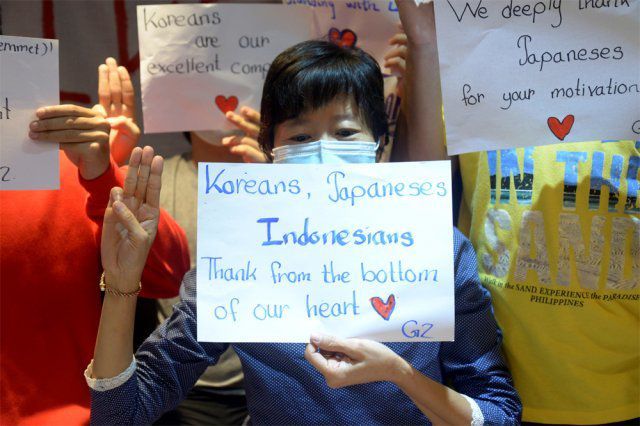 emmet)!
Koreans
are our
excellent
We deeply thank
Japaneses
for your motivation
Koreans, Japaneses
Indonesians
Thank from the bottom
of our heart
GZ
IN THE
SAND EXPERIENCE the PARADISE
PHILIPPINES